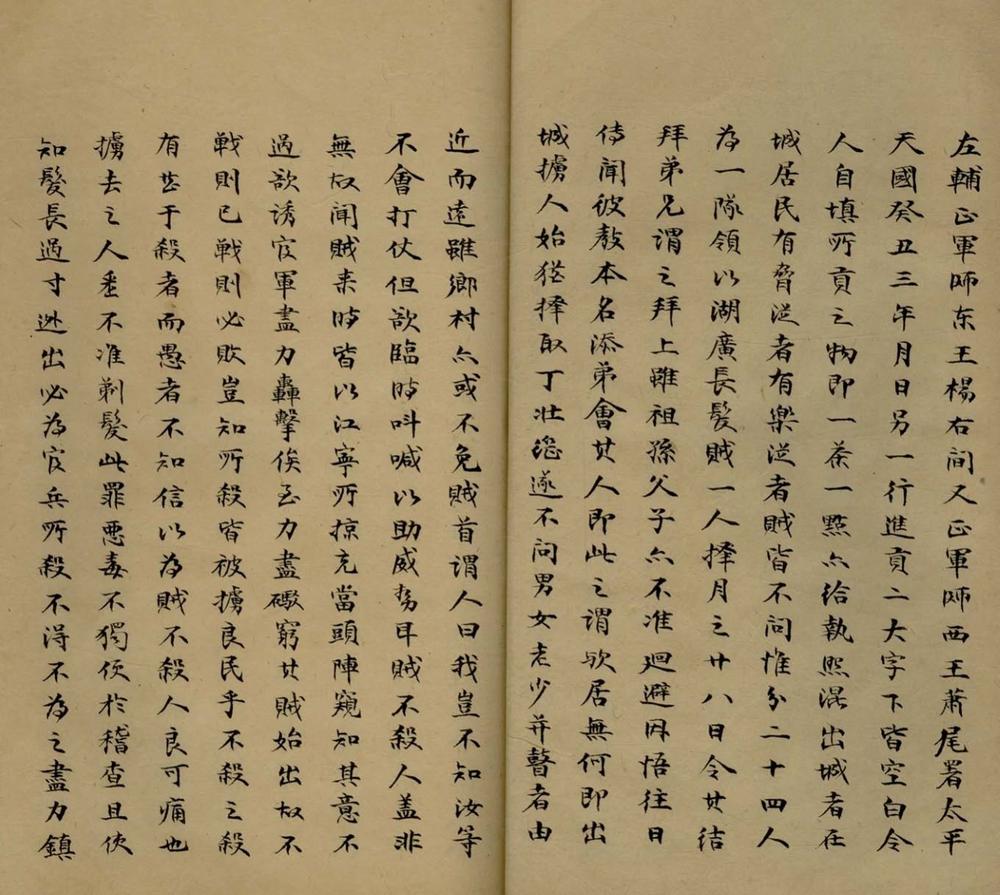 左輔正軍師东王楊右間又正軍師西王蕭尾署太平
天國癸丑三年月日另一行進貢二大字下皆空白令
人自填所貢之物即一茶一點亦给執照混出城者在
城居民有脅從者有樂從者賊皆不問惟分二十四人
為一隊領以湖廣長髮賊一人擇月之廿八日令其结
拜弟兄謂之拜上雖祖孫父子亦不准廻避因悟往日
侍聞彼教本名添弟會其人即此之謂欤居無何即出
城擄人始猶擇取丁壯繼遂不問男女老少并瞽者由
近而遠雖鄉村亦或不免賊首謂人曰我豈不知汝等
不會打仗但欲臨時呌喊以助威势耳賊不殺人盖非
無故闻賊来時皆以江寧所掠充當頭陣窺知其意不
過欲诱官軍盡力轟擊俟至力盡礮窮其賊始出故不
戦則已戦則必敗豈知所殺皆被擄良民乎不殺之殺
有甚于殺者而愚者不知信以為賊不殺人良可痛也
擄去之人悉不准剃髮此罪惡毒不獨便於稽查且使
知髮長過寸逃出必為官兵所殺不得不為之盡力鎮